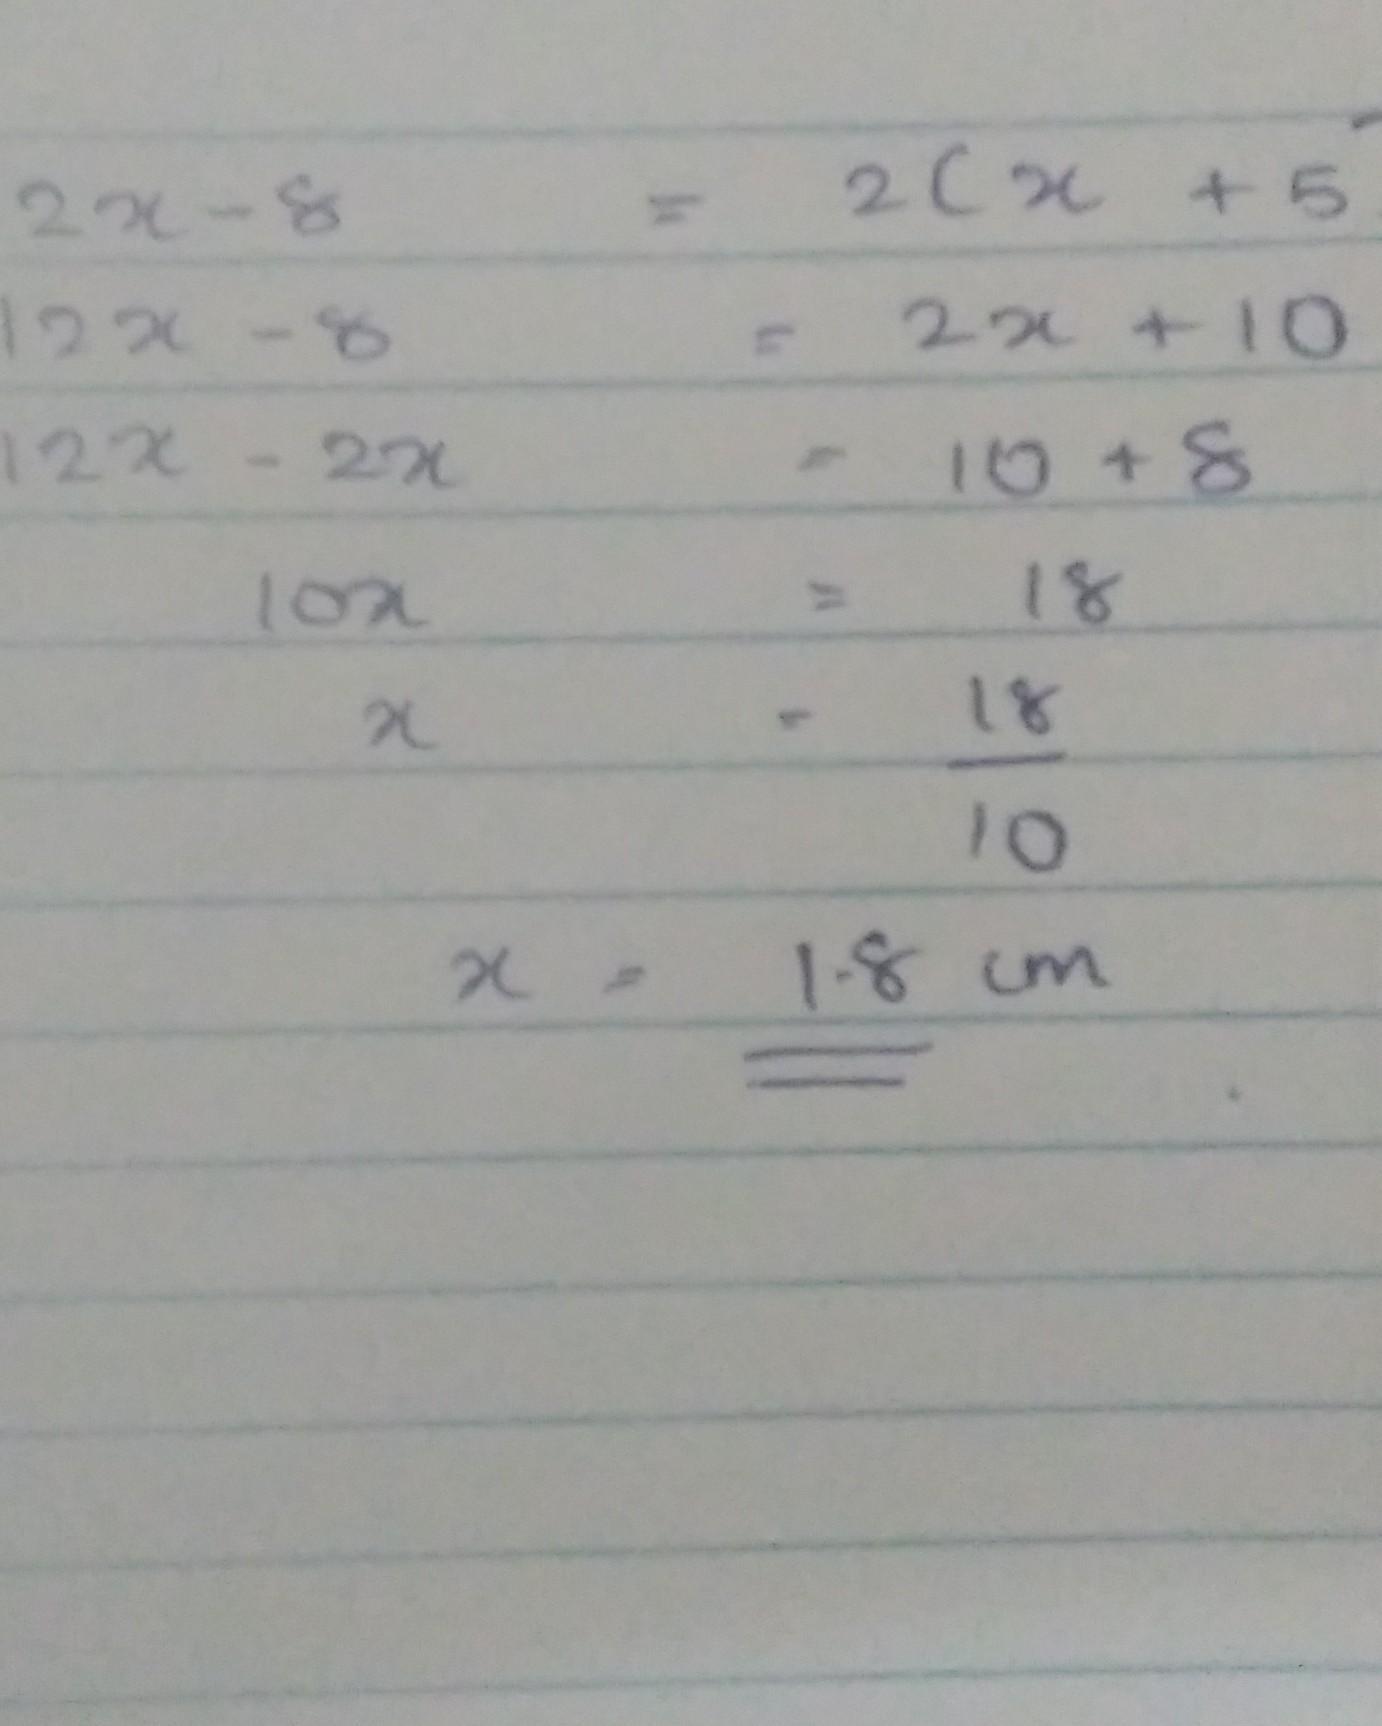 2x - 8 = 2(x + 5
12x - 8 = 2x + 10
12x - 2x = 10 + 8
10x = 18
x = 18
10
x = 1.8 cm